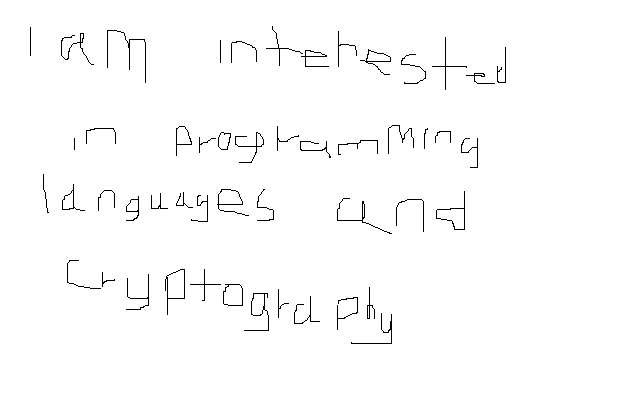 I am interested
in programming
languages and
cryptography